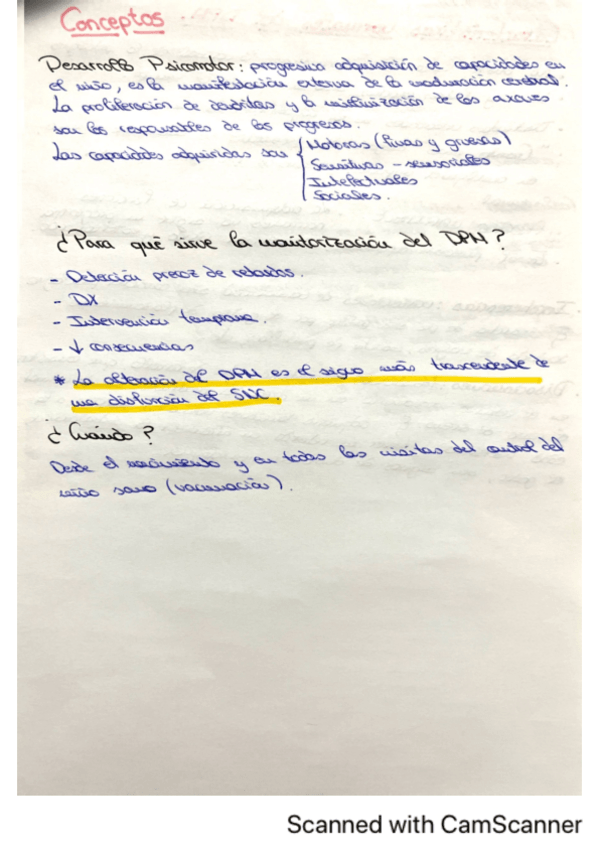 Conceptos
Desarrollo Psicomotor: progresiva adquisición de capacidades en
el niño, es la manifestación externa de la maduración cerebral.
La proliferación de dendritas y la mielinización de los axones
son los responsables de los progresos.
Las capacidades adquiridas son { Motoras (finas y gruesas)
Sensitivas - sensoriales
Intelectuales
Sociales.
¿Para qué sirve la monitorización del DPM?
- Detección precoz de retardos.
- DX
- Intervención temprana.
- ↓ consecuencias
* La alteración del DPM es el signo más trascendente de
una disfunción del SNC.
¿Cuándo?
Desde el nacimiento y en todas las visitas del control del
niño sano (vacunación).
Scanned with CamScanner